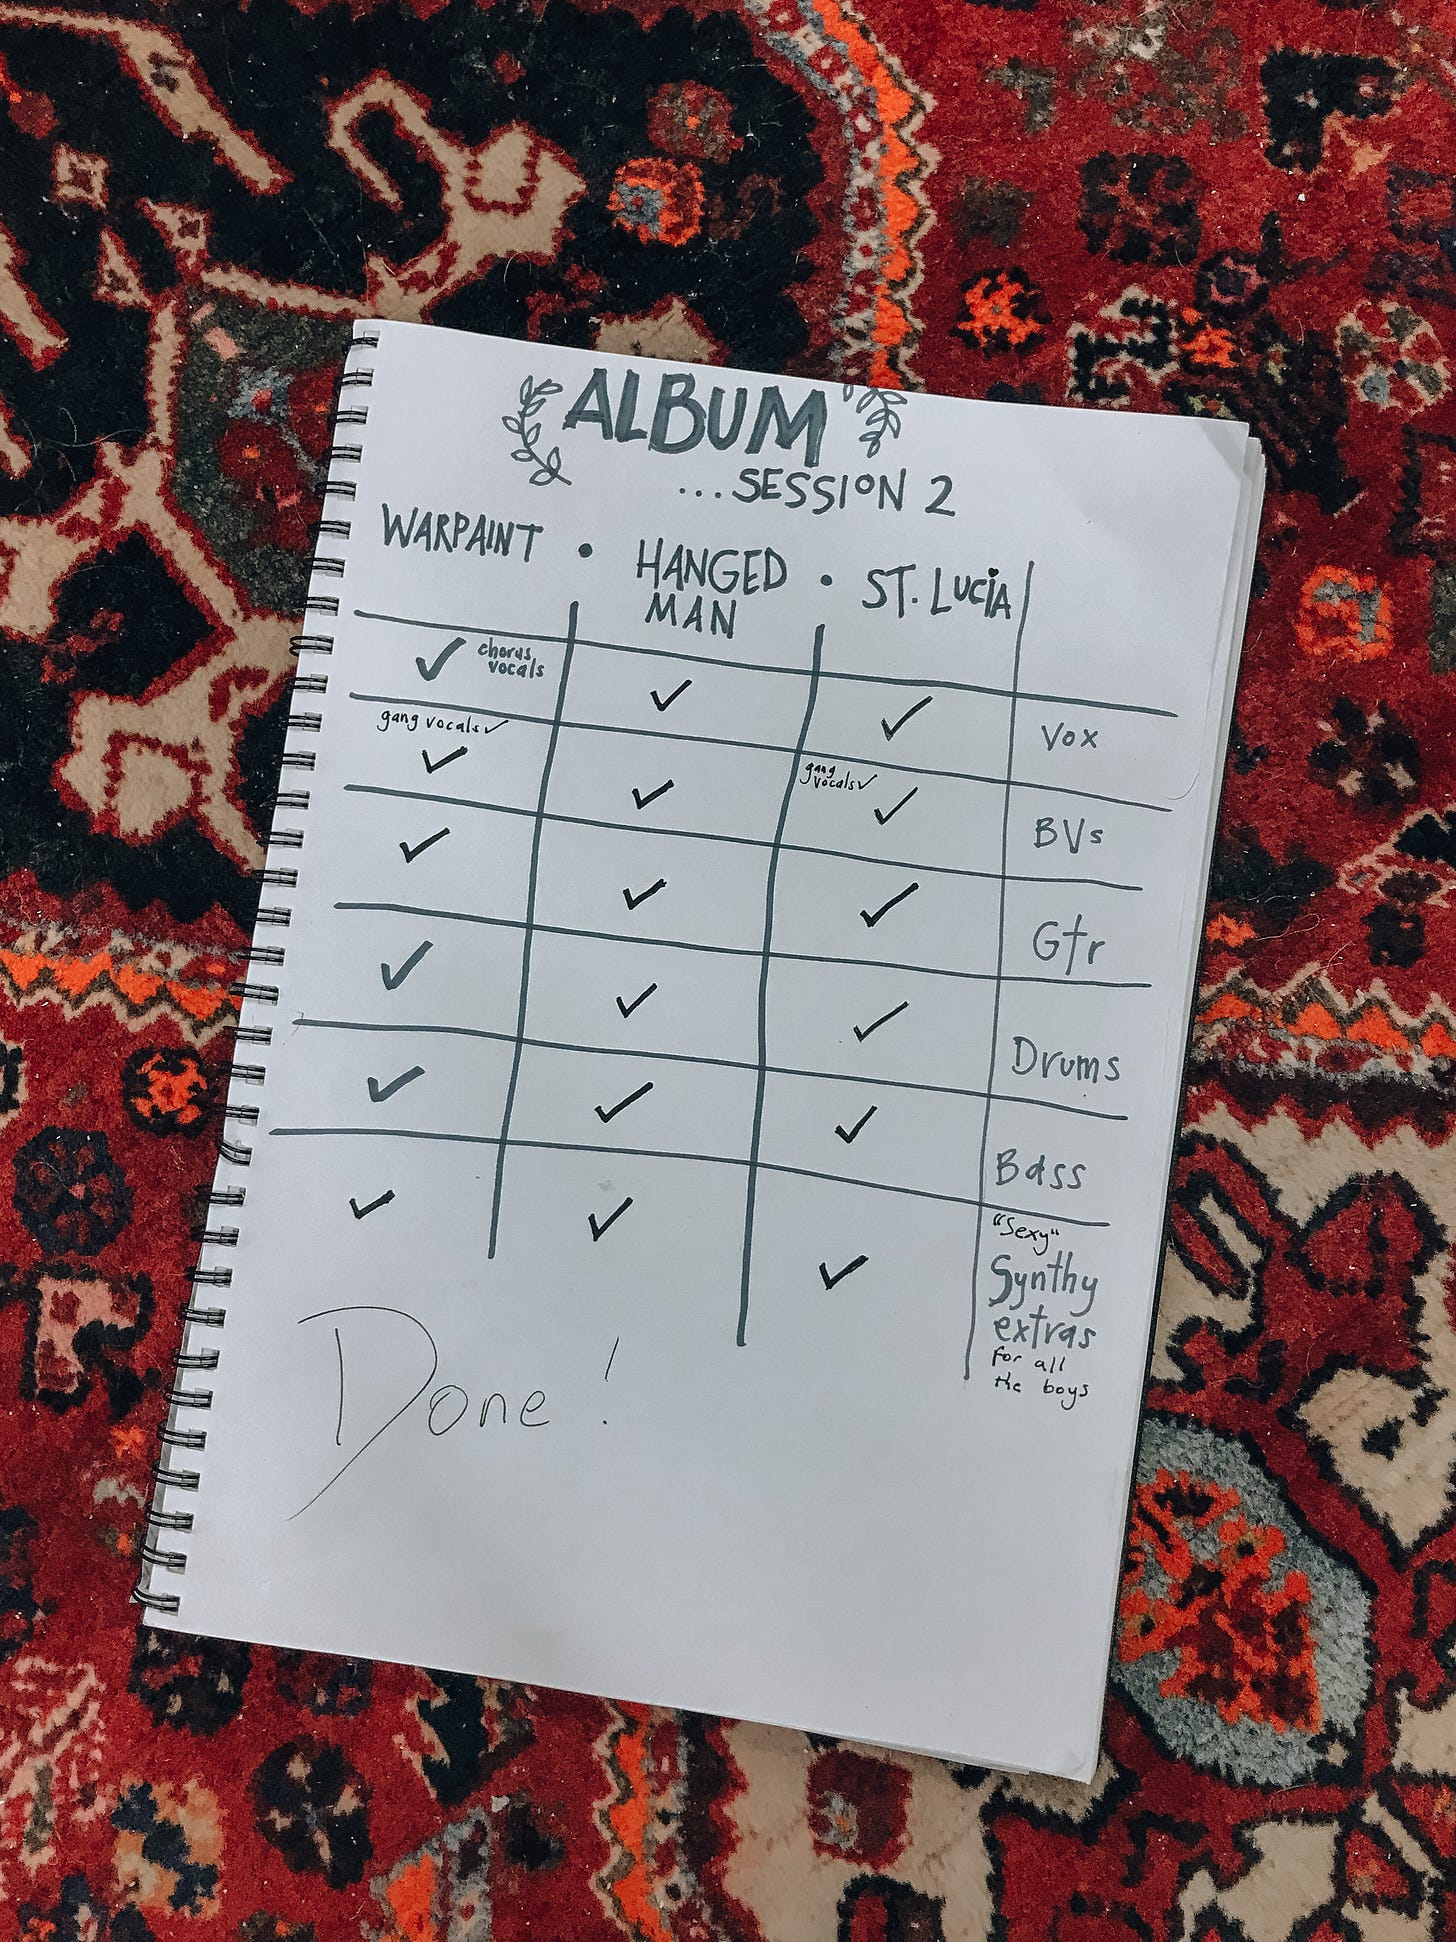 ALBUM
...SESSION 2
WARPAINT • HANGED MAN • ST. LUCIA
✓ chorus vocals ✓ ✓ Vox
gang vocals ✓ ✓ ✓ gang vocals ✓ ✓ BVs
✓ ✓ ✓ Gtr
✓ ✓ ✓ Drums
✓ ✓ ✓ Bass
✓ ✓ ✓ "Sexy"
Synthy
extras
for all
the boys
Done!